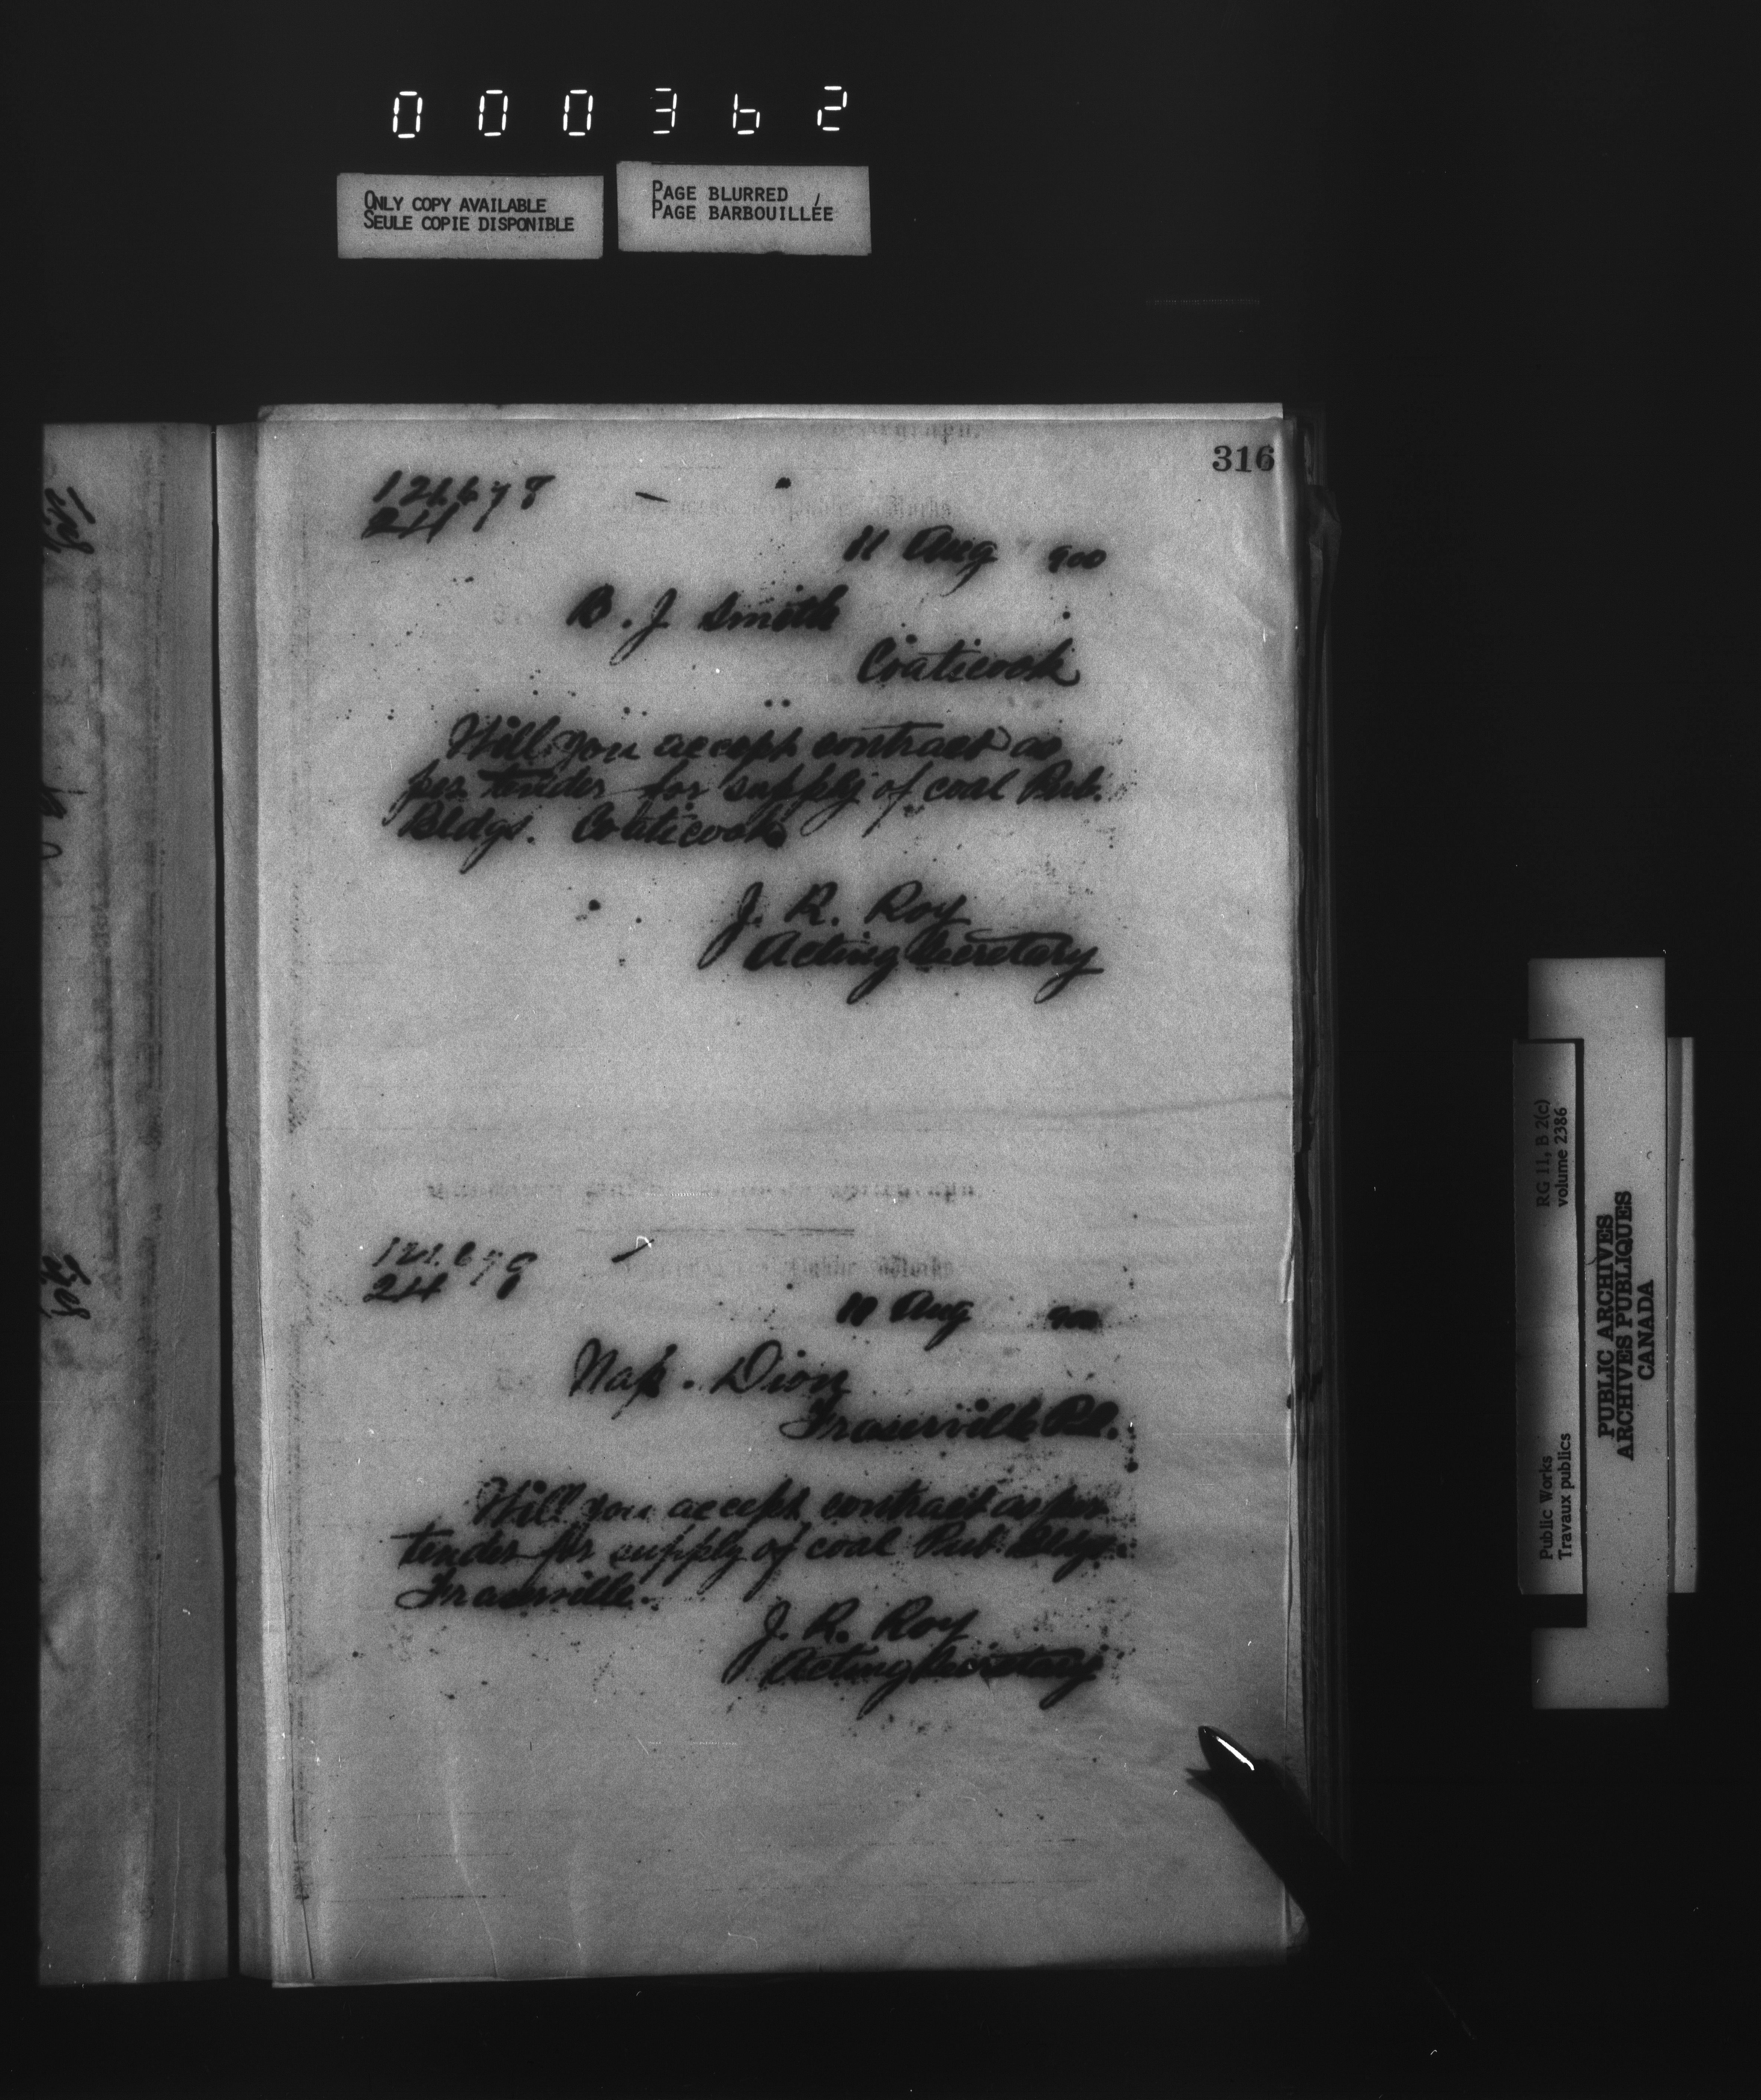 000362
ONLY COPY AVAILABLE
SEULE COPIE DISPONIBLE
PAGE BLURRED
PAGE BARBOUILLÉE
316
121678
244
11 Aug 900
B. J. Smith
Coaticook
Will you accept contract as
per tender for supply of coal Pub.
Bldgs. Coaticook
J. R. Roy
Acting Secretary
244
Aug 900
Nap. Dion
Fraserville P.Q.
Will you accept contract as per
tender for supply of coal Pub. Bldgs
Fraserville.
J. R. Roy
Acting Secretary
RG 11, B 2(c)
volume 2386
Public Works
Travaux publics
PUBLIC ARCHIVES
ARCHIVES PUBLIQUES
CANADA